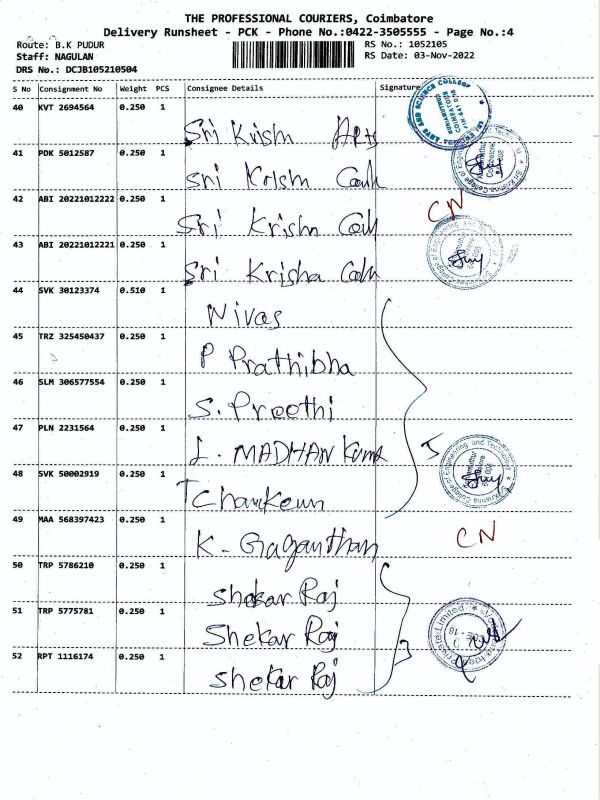 THE PROFESSIONAL COURIERS, Coimbatore
Delivery Runsheet - PCK - Phone No.:0422-3505555 - Page No.:4
Route: B.K PUDUR
RS No.: 1052105
Staff: NAGULAN
RS Date: 03-Nov-2022
DRS No.: DCJB105210504
S No Consignment No Weight PCS Consignee Details Signature
40 KVT 2694564 0.250 1 Sri Krish Arts
41 PDK 5012587 0.250 1 Sri Krish
42 ABI 20221012222 0.250 1 Sri Krish
CN
43 ABI 20221012221 0.250 1 Sri Krisha
44 SVK 30123374 0.510 1 Nivas
45 TRZ 325450437 0.250 1 P Prathibha
46 SLM 306577554 0.250 1 S. Preethi
47 PLN 2231564 0.250 1 L. MADHAN Kuma 5
48 SVK 50002919 0.250 1
49 MAA 568397423 0.250 1 K - Gaganthan
CN
50 TRP 5786210 0.250 1 Shekar Raj
51 TRP 5775781 0.250 1 Shekar Raj 3
52 RPT 1116174 0.250 1 Shekar Raj